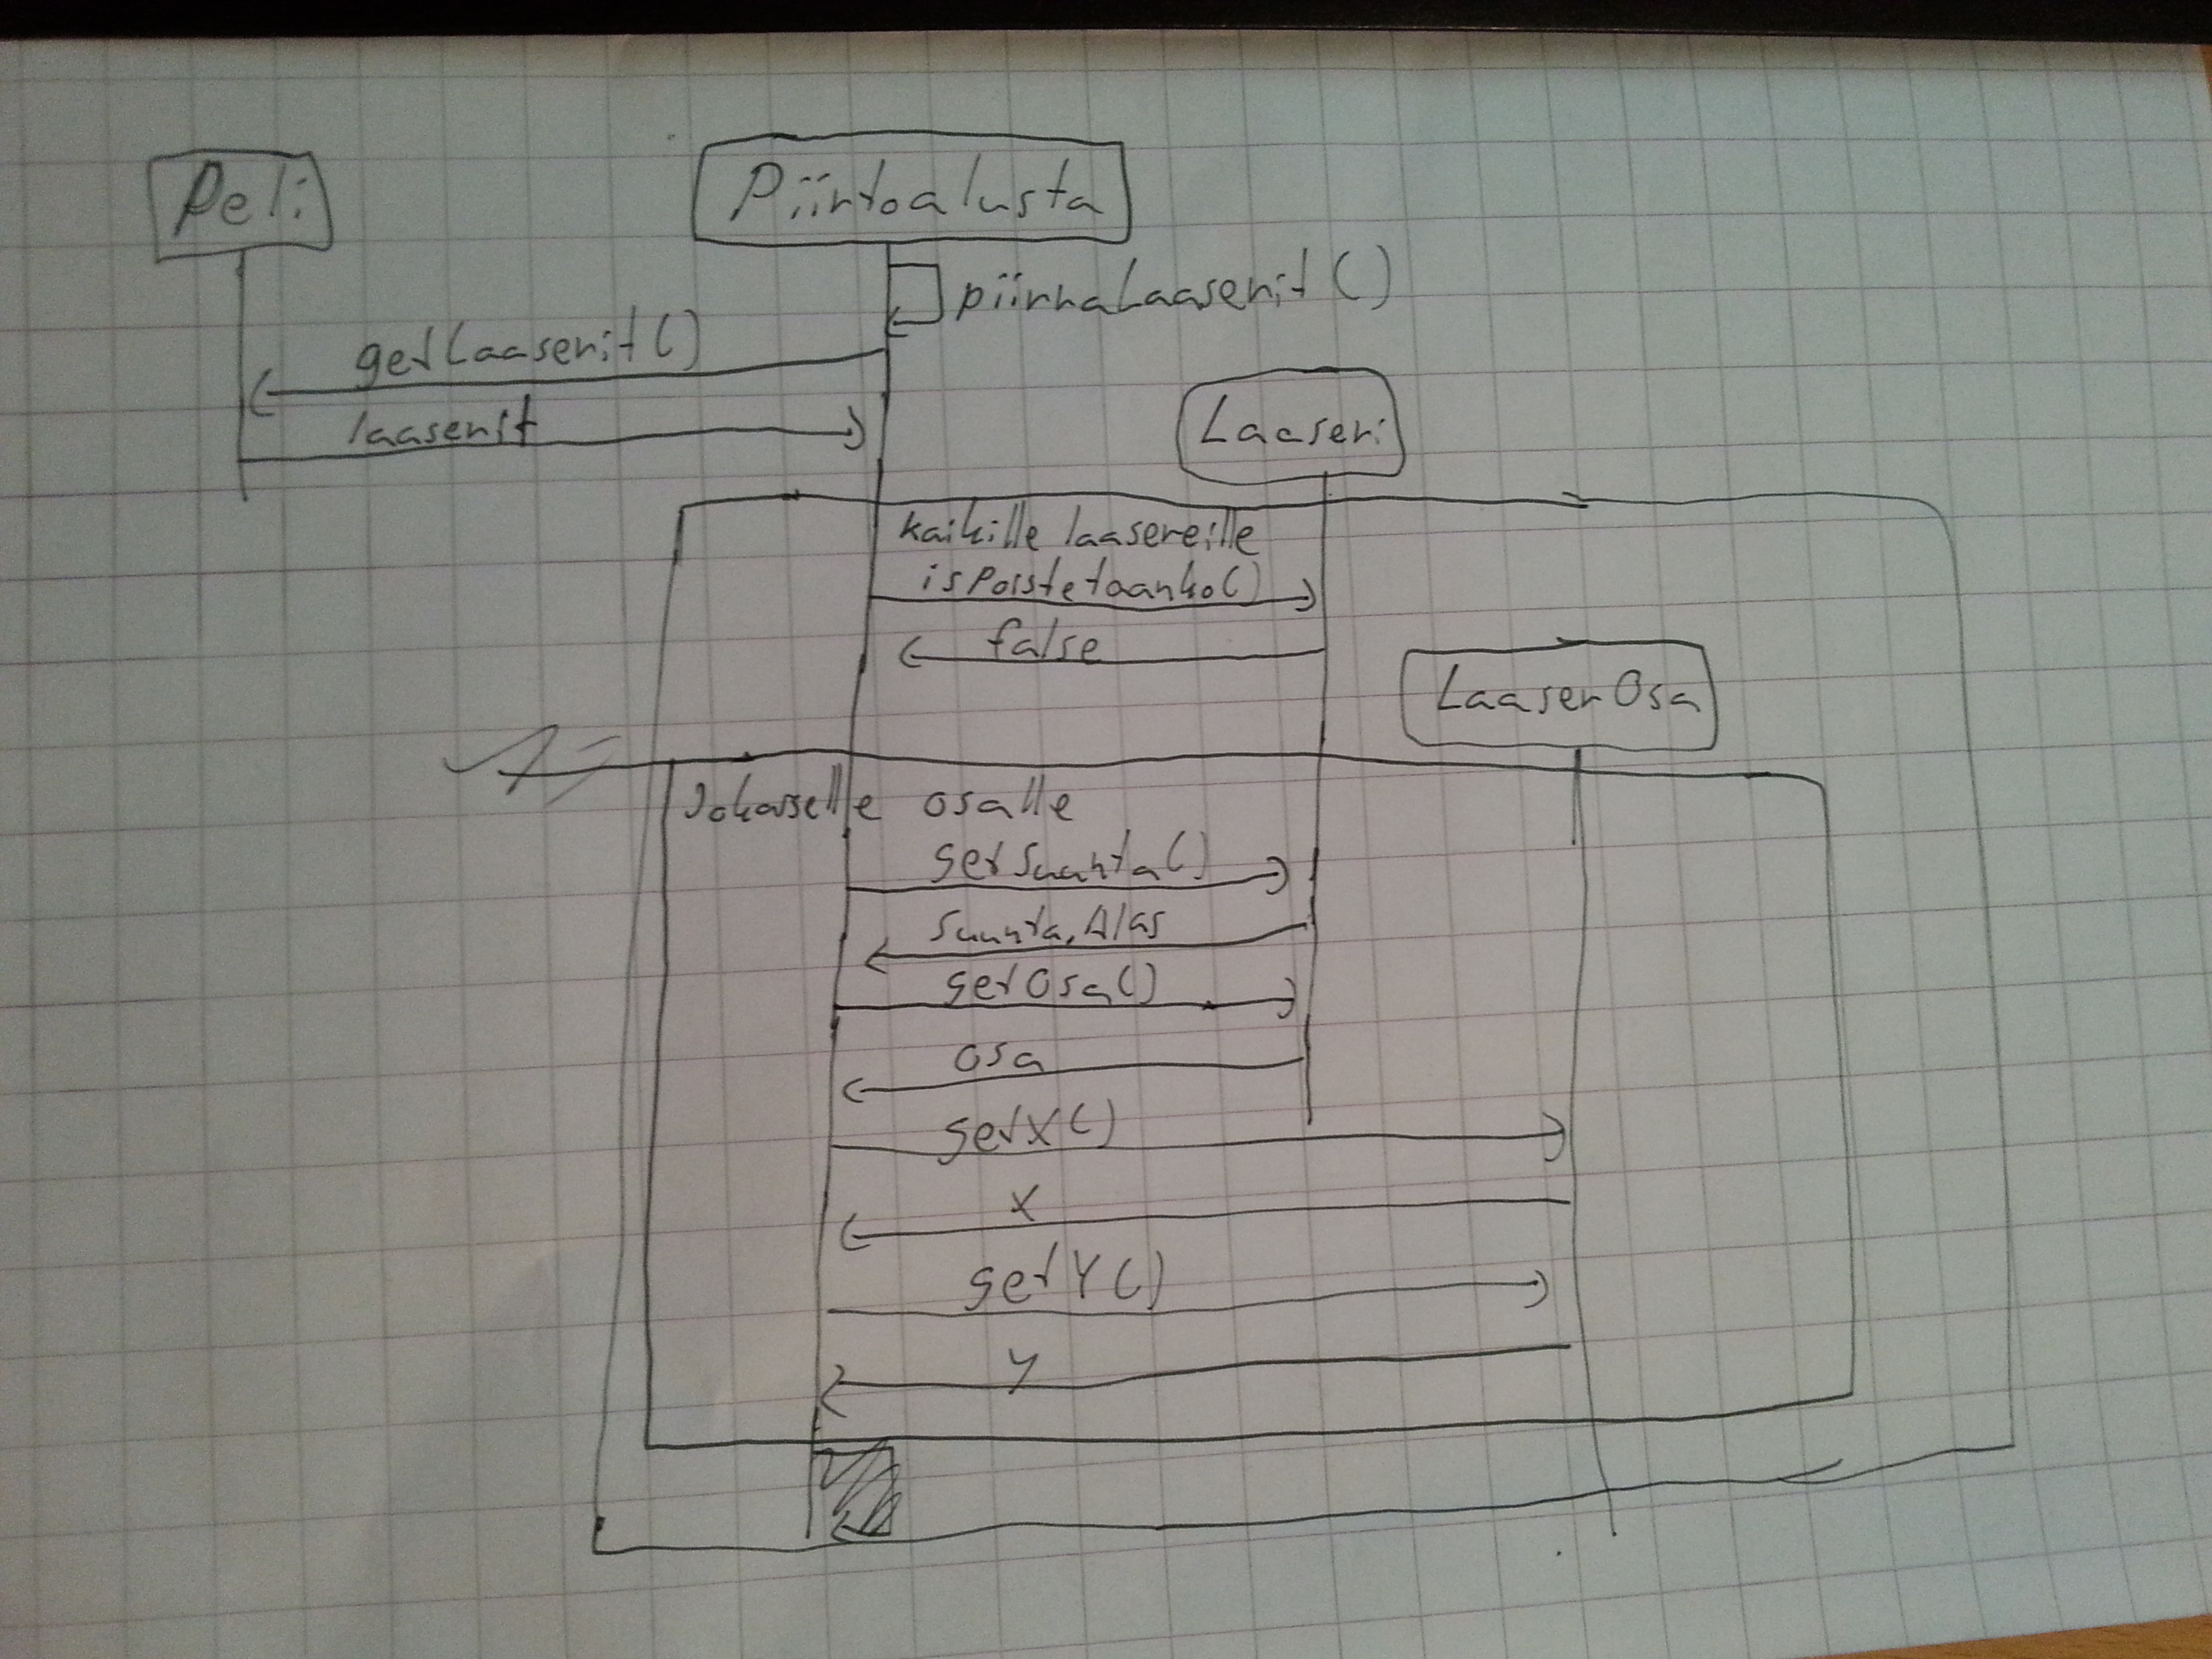 Peli
Piirtoalusta
piirraLaaserit()
getLaaserit()
laaserit
Laaseri
kaikille laasereille
isPoistetaanko()
false
LaaserOsa
Jokaiselle osalle
getSuunta()
Suunta.Alas
getOsa()
osa
getX()
x
getY()
y